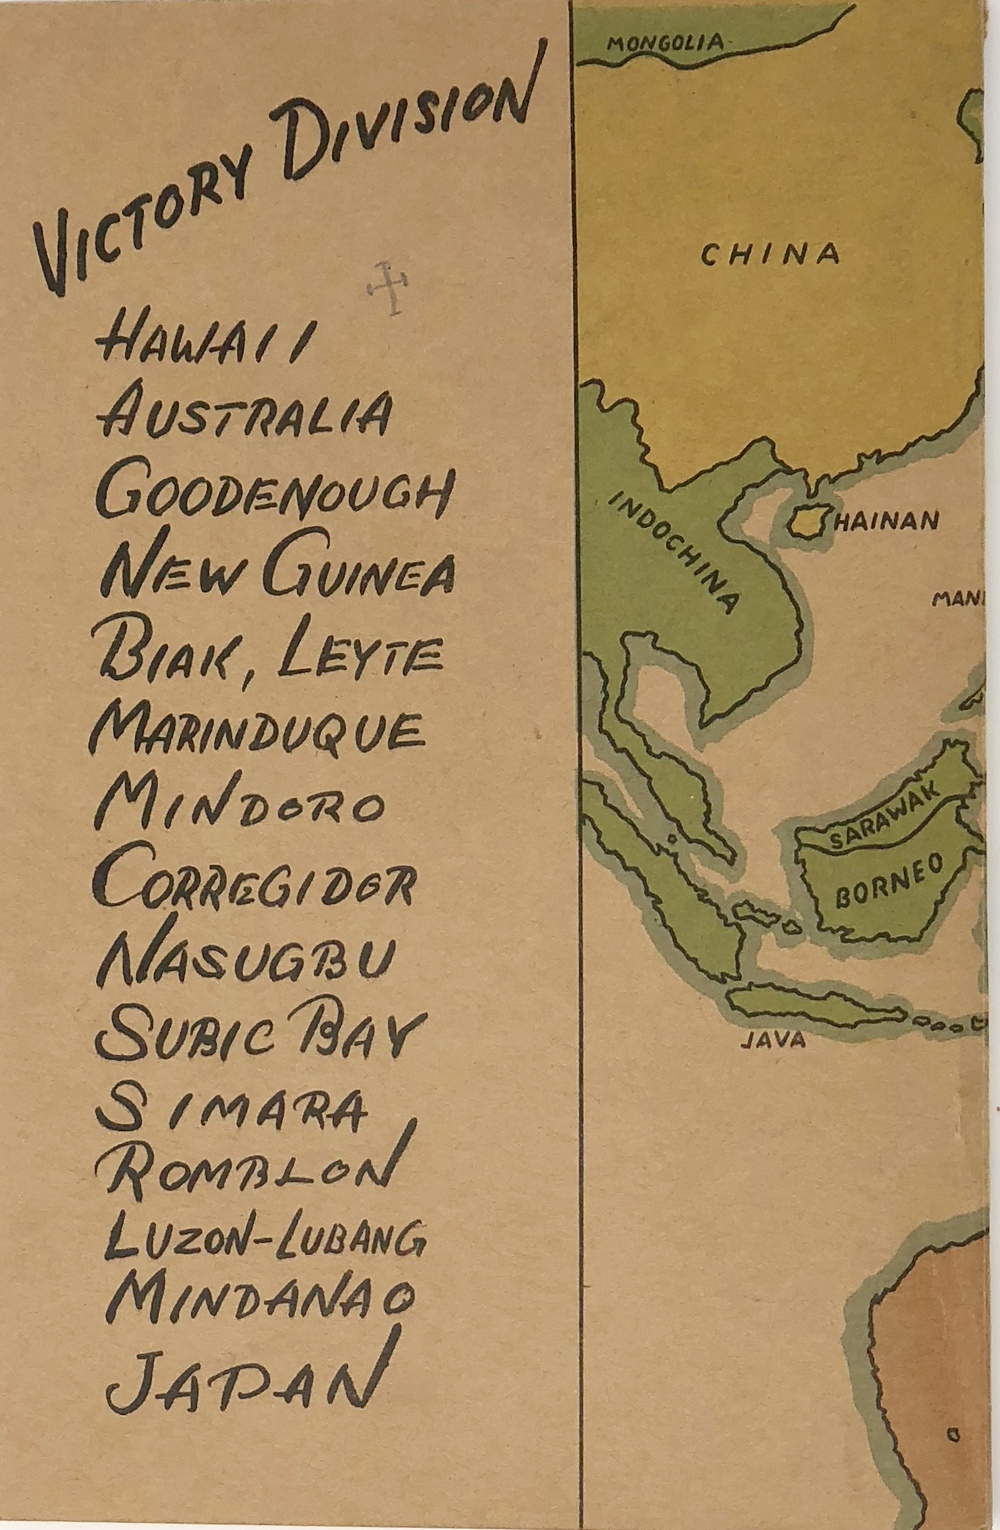 VICTORY DIVISION
HAWAII
AUSTRALIA
GOODENOUGH
NEW GUINEA
BIAK, LEYTE
MARINDUQUE
MINDORO
CORREGIDOR
NASUGBU
SUBIC BAY
SIMARA
ROMBLON
LUZON-LUBANG
MINDANAO
JAPAN
MONGOLIA
CHINA
INDOCHINA
HAINAN
MANI
SARAWAK
BORNEO
JAVA